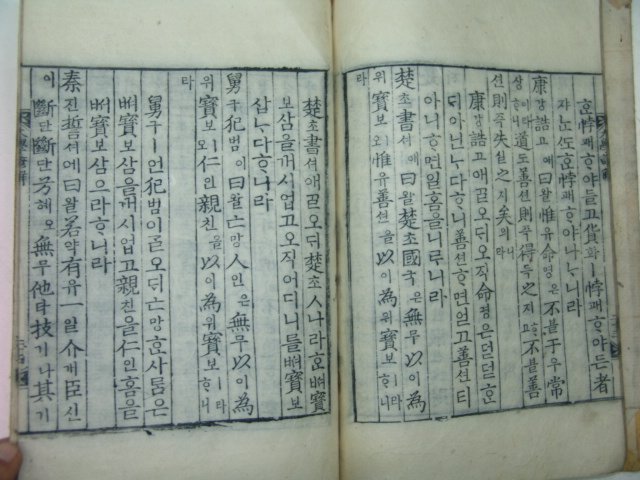 ᄒᆞᆫ悖패ᄒᆞ야들고貨화ㅣ悖패ᄒᆞ야든者
쟈ᄂᆞᆫᄯᅩᄒᆞᆫ悖패ᄒᆞ야나ᄂᆞ니라
康강誥고애曰왈惟유命명은不블于우常
샹이라ᄒᆞ니道도善션則즉得득之지코不블善
션則즉失실之지矣의라니
康강誥고애ᄀᆞᆯ오ᄃᆡ오직命명은덛덛ᄒᆞᆫ
ᄃᆡ아닌ᄂᆞ다ᄒᆞ니善션ᄒᆞ면얻고善션티
아니ᄒᆞ면일홈을니ᄅᆞ니라
楚초書셔애曰왈楚초國국은無무以이為
위寶보ㅣ오惟유善션을以이為위寶보ㅣ라ᄒᆞ니
라
楚초書셔애ᄀᆞᆯ오ᄃᆡ楚초人나라ᄒᆞᆫᄡᅥ寶
보삼을꺼시업고오직어디니ᄅᆞᆯᄡᅥ寶보
삼ᄂᆞ다ᄒᆞ니라
舅구犯범이曰왈亡망人인은無무以이為
위寶보ㅣ오仁인親친을以이為위寶보ㅣ라ᄒᆞ니
라
舅구ㅣ언犯범이ᄀᆞᆯ오ᄃᆡ亡망ᄒᆞᆫ사ᄅᆞᆷ은
ᄡᅥ寶보삼을꺼시업고親친을仁인홈을
ᄡᅥ寶보삼으라ᄒᆞ니라
秦진誓셔에曰왈若약有유一일介개臣신
이斷단斷단兮혜오無무他타技기나其기